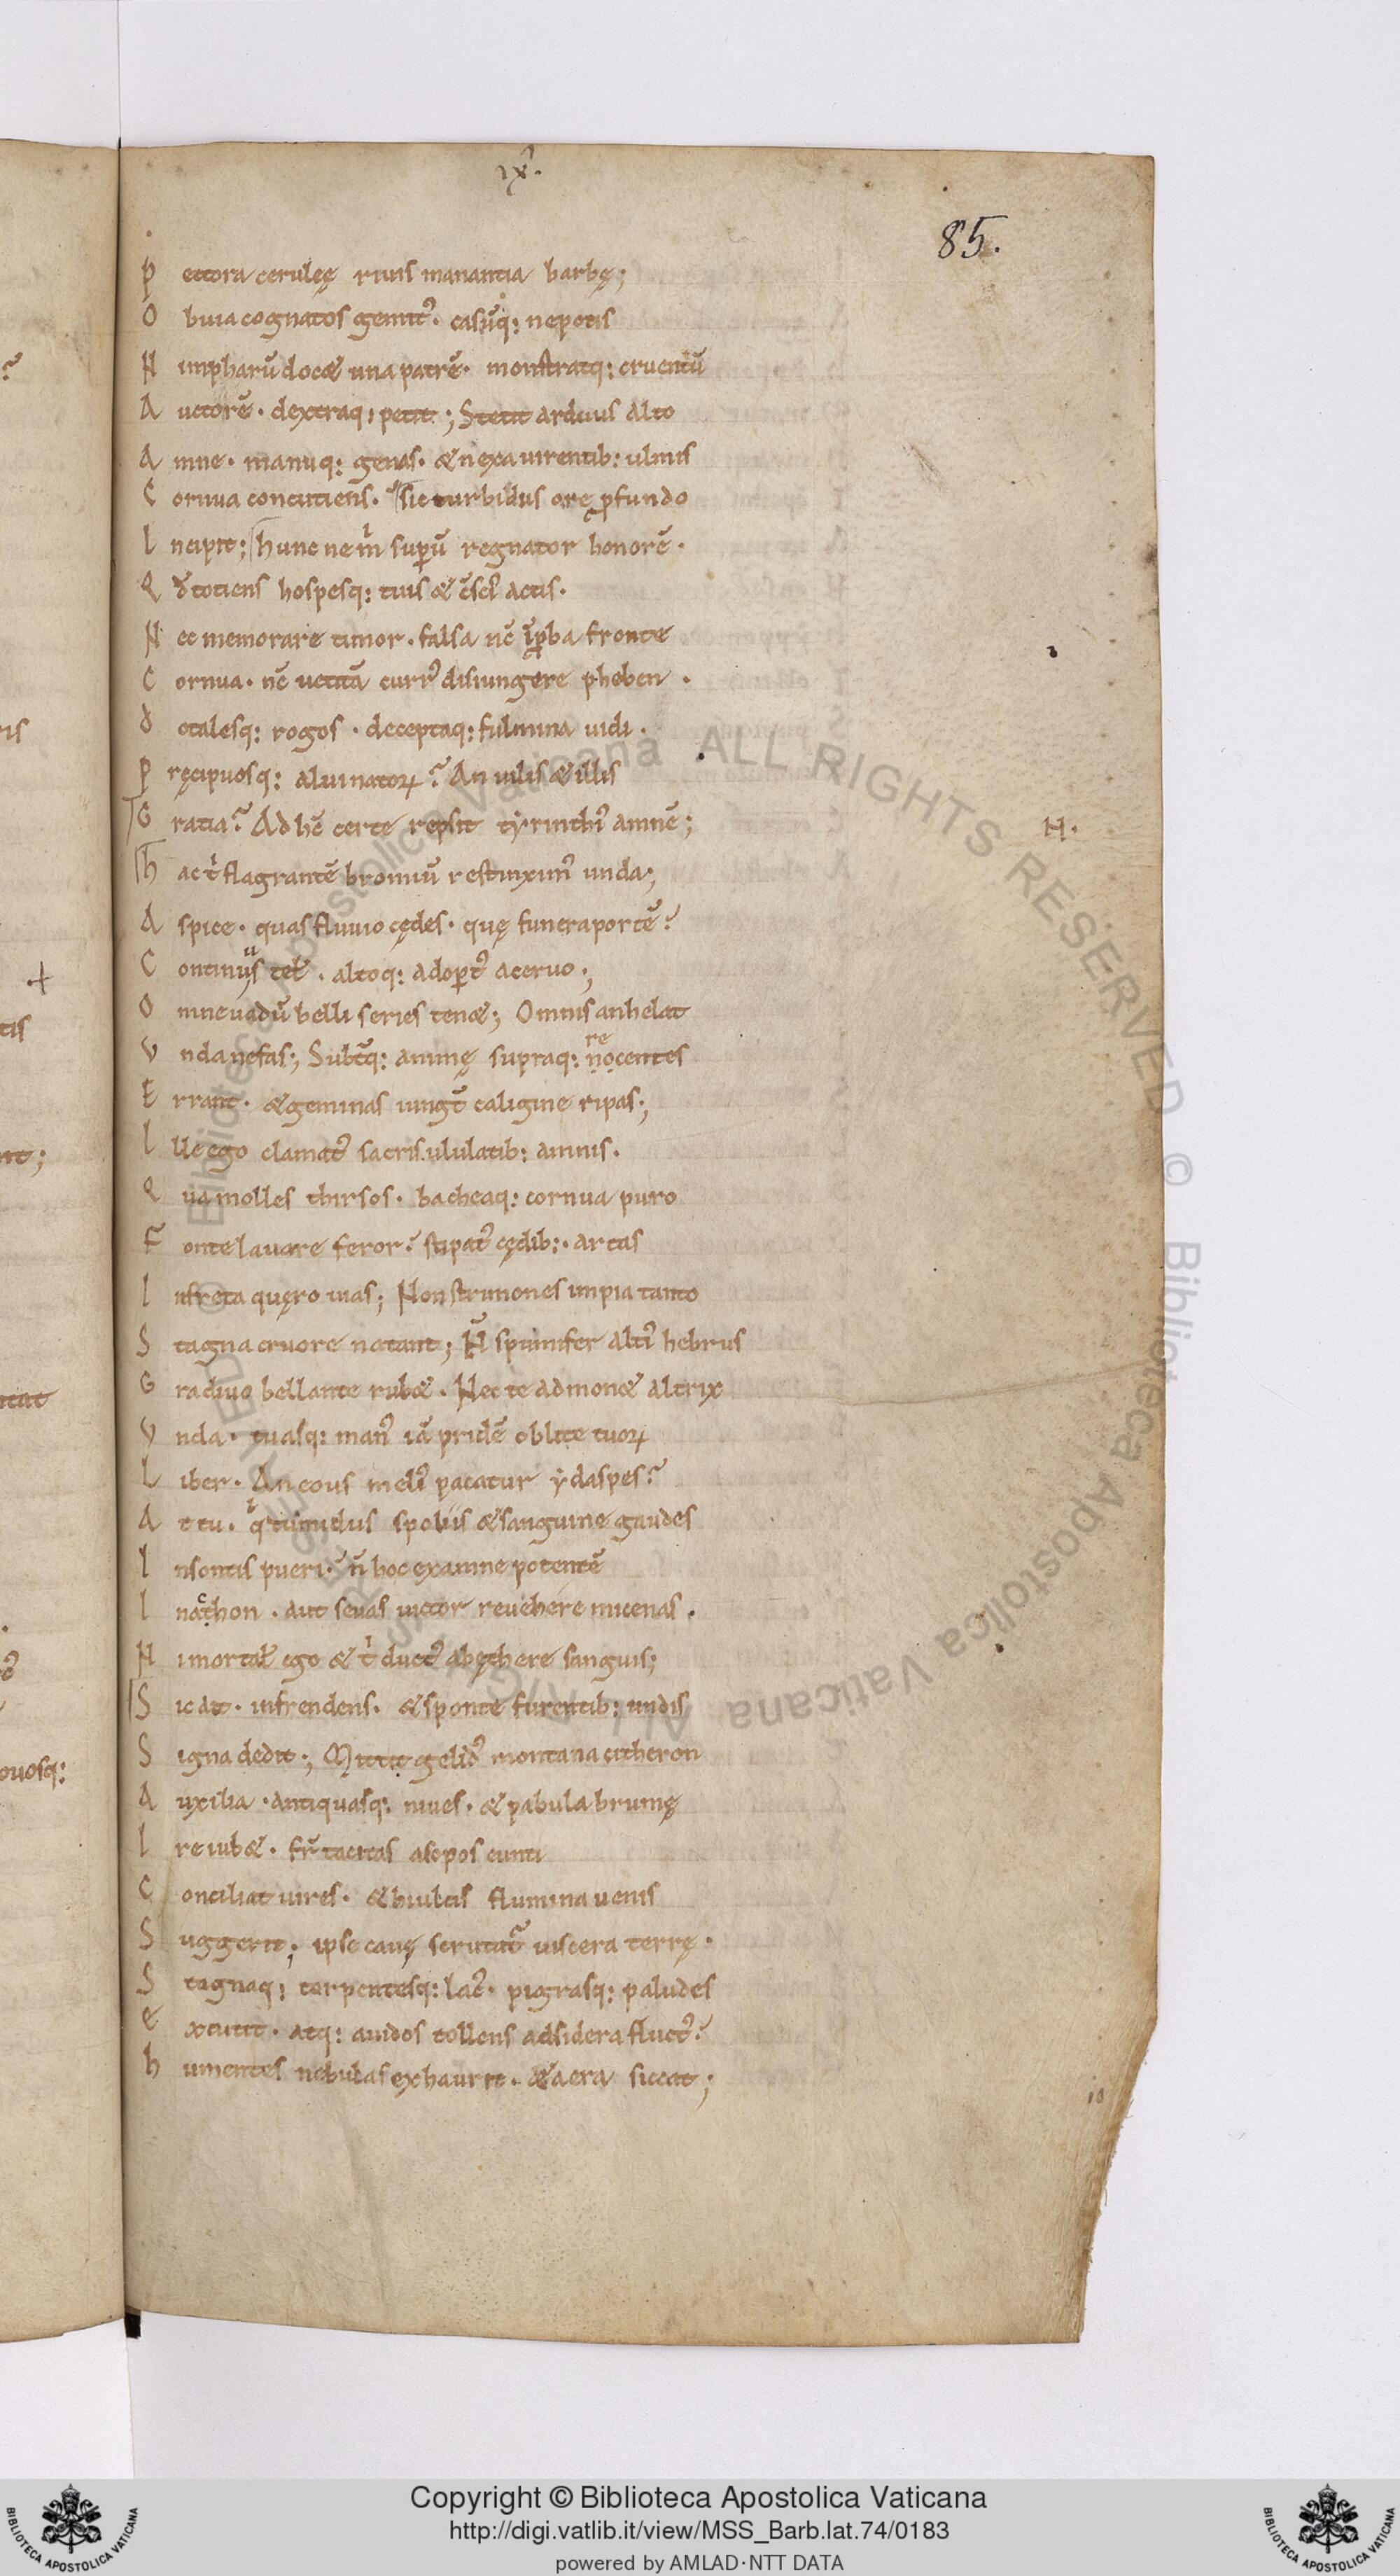 ix.
85.
Pectora cerulеę riuis manantia barbę;
Obuia cognatos gemit᷒. casūq: nepotis
Nimpharū docæ una patrē. monstratq: cruentū
Auctorē. dextraq; petit; Stetit arduus alto
Amne. manuq: genas. & nexa uirentib: ulmis
Cornua concutiens. sic turbidus ore ꝓfundo
Incipit; hunc ne m̄ supū regnator honorē.
Qd̄ totiens hospesq: tuis & c̄sci᷒ actis.
Nec memorare timor. falsa nc̄ īp̱ba fronte
Cornua. nc̄ uetitā curr᷒ disiungere pheben.
dotalesq: rogos. deceptaq: fulmina uidi.
Pręcipuosq: alui natoꝝ? An uilis & illis
Gratia? Ad hc̄ certe repsit tyrinthi᷒ amnē;
hac t̄ flagrantē bromiū restinxim᷒ unda;
Aspice. quas fluuio cędes. quę funera portē?
Continuus telis. altoq: adopt᷒ aceruo;
Omne uadū belli series tenæ; Omnis anhelat
Unda nefas; Subtq: animę supraq: recentes
Errant. & geminas iungt̄ caligine ripas;
Ille ego clamat᷒ sacris ululatib: amnis.
Qua molles thirsos. bacheaq: cornua puro
Fonte lauare feror? stipat᷒ cędib:. artas
In freta quęro uias; Non strimones impia tanto
Stagna cruore natant; N̄ spumifer alti᷒ hebrus
Gradiuo bellante rubæ. Nec te admonæ altrix
Unda. tuasq: man᷒ iā pridē oblite tuoꝝ
Liber. An eous meli᷒ pacatur ydaspes?
At tu. q̄ tumidus spoliis & sanguine gaudes
Insontis pueri. n̄ hoc ex amne potentē
Inachon. aut seuas uictor reuehere micenas.
Ni mortal᷒ ego & t̄ duct᷒ ab ęthere sanguis;
Sic ait. infrendens. & sponte furentib: undis
Signa dedit; Mittit gelid᷒ montana citheron
Auxilia. antiquasq: niues. & pabula brumę
Ire iubæ. fr̄ tacitas asopos eunti
Conciliat uires. & hiulcis flumina uenis
Suggerit; ipse cauę scrutat᷒ uiscera terrę.
Stagnaq; torpentesq: lac᷒. pigrasq: paludes
excutit. atq: auidos tollens ad sidera fluct᷒?
humentes nebulas exhaurit. & aera siccat;
H.
Copyright © Biblioteca Apostolica Vaticana
http://digi.vatlib.it/view/MSS_Barb.lat.74/0183
powered by AMLAD·NTT DATA